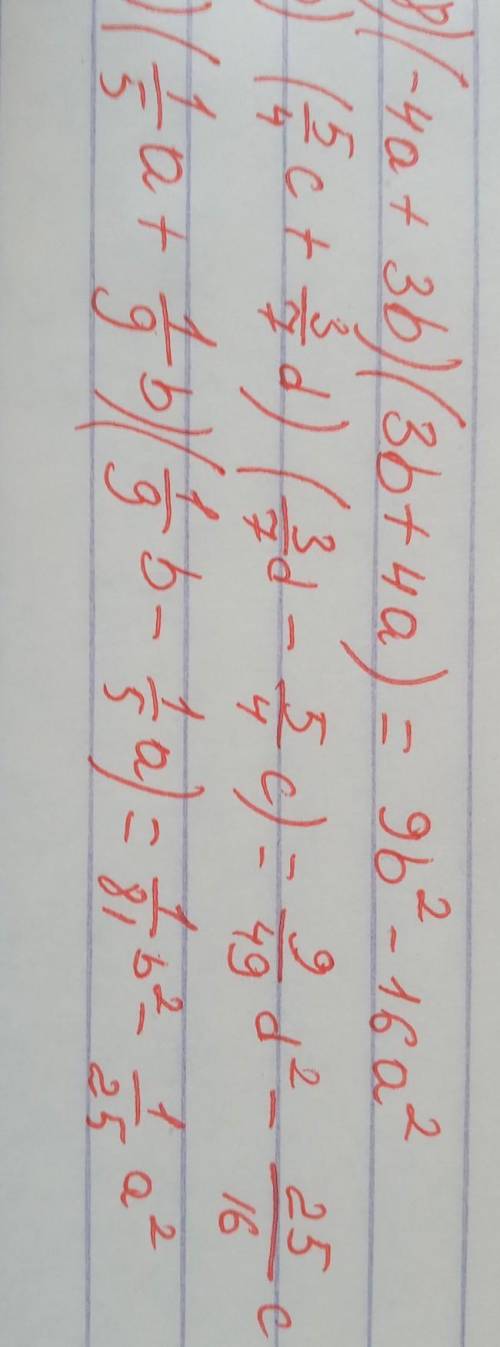 (-4a + 3b)(3b + 4a) = 9b² - 16a²
(5/4 c + 3/7 d)(3/7 d - 5/4 c) = 9/49 d² - 25/16 c
(1/5 a + 1/9 b)(1/9 b - 1/5 a) = 1/81 b² - 1/25 a²